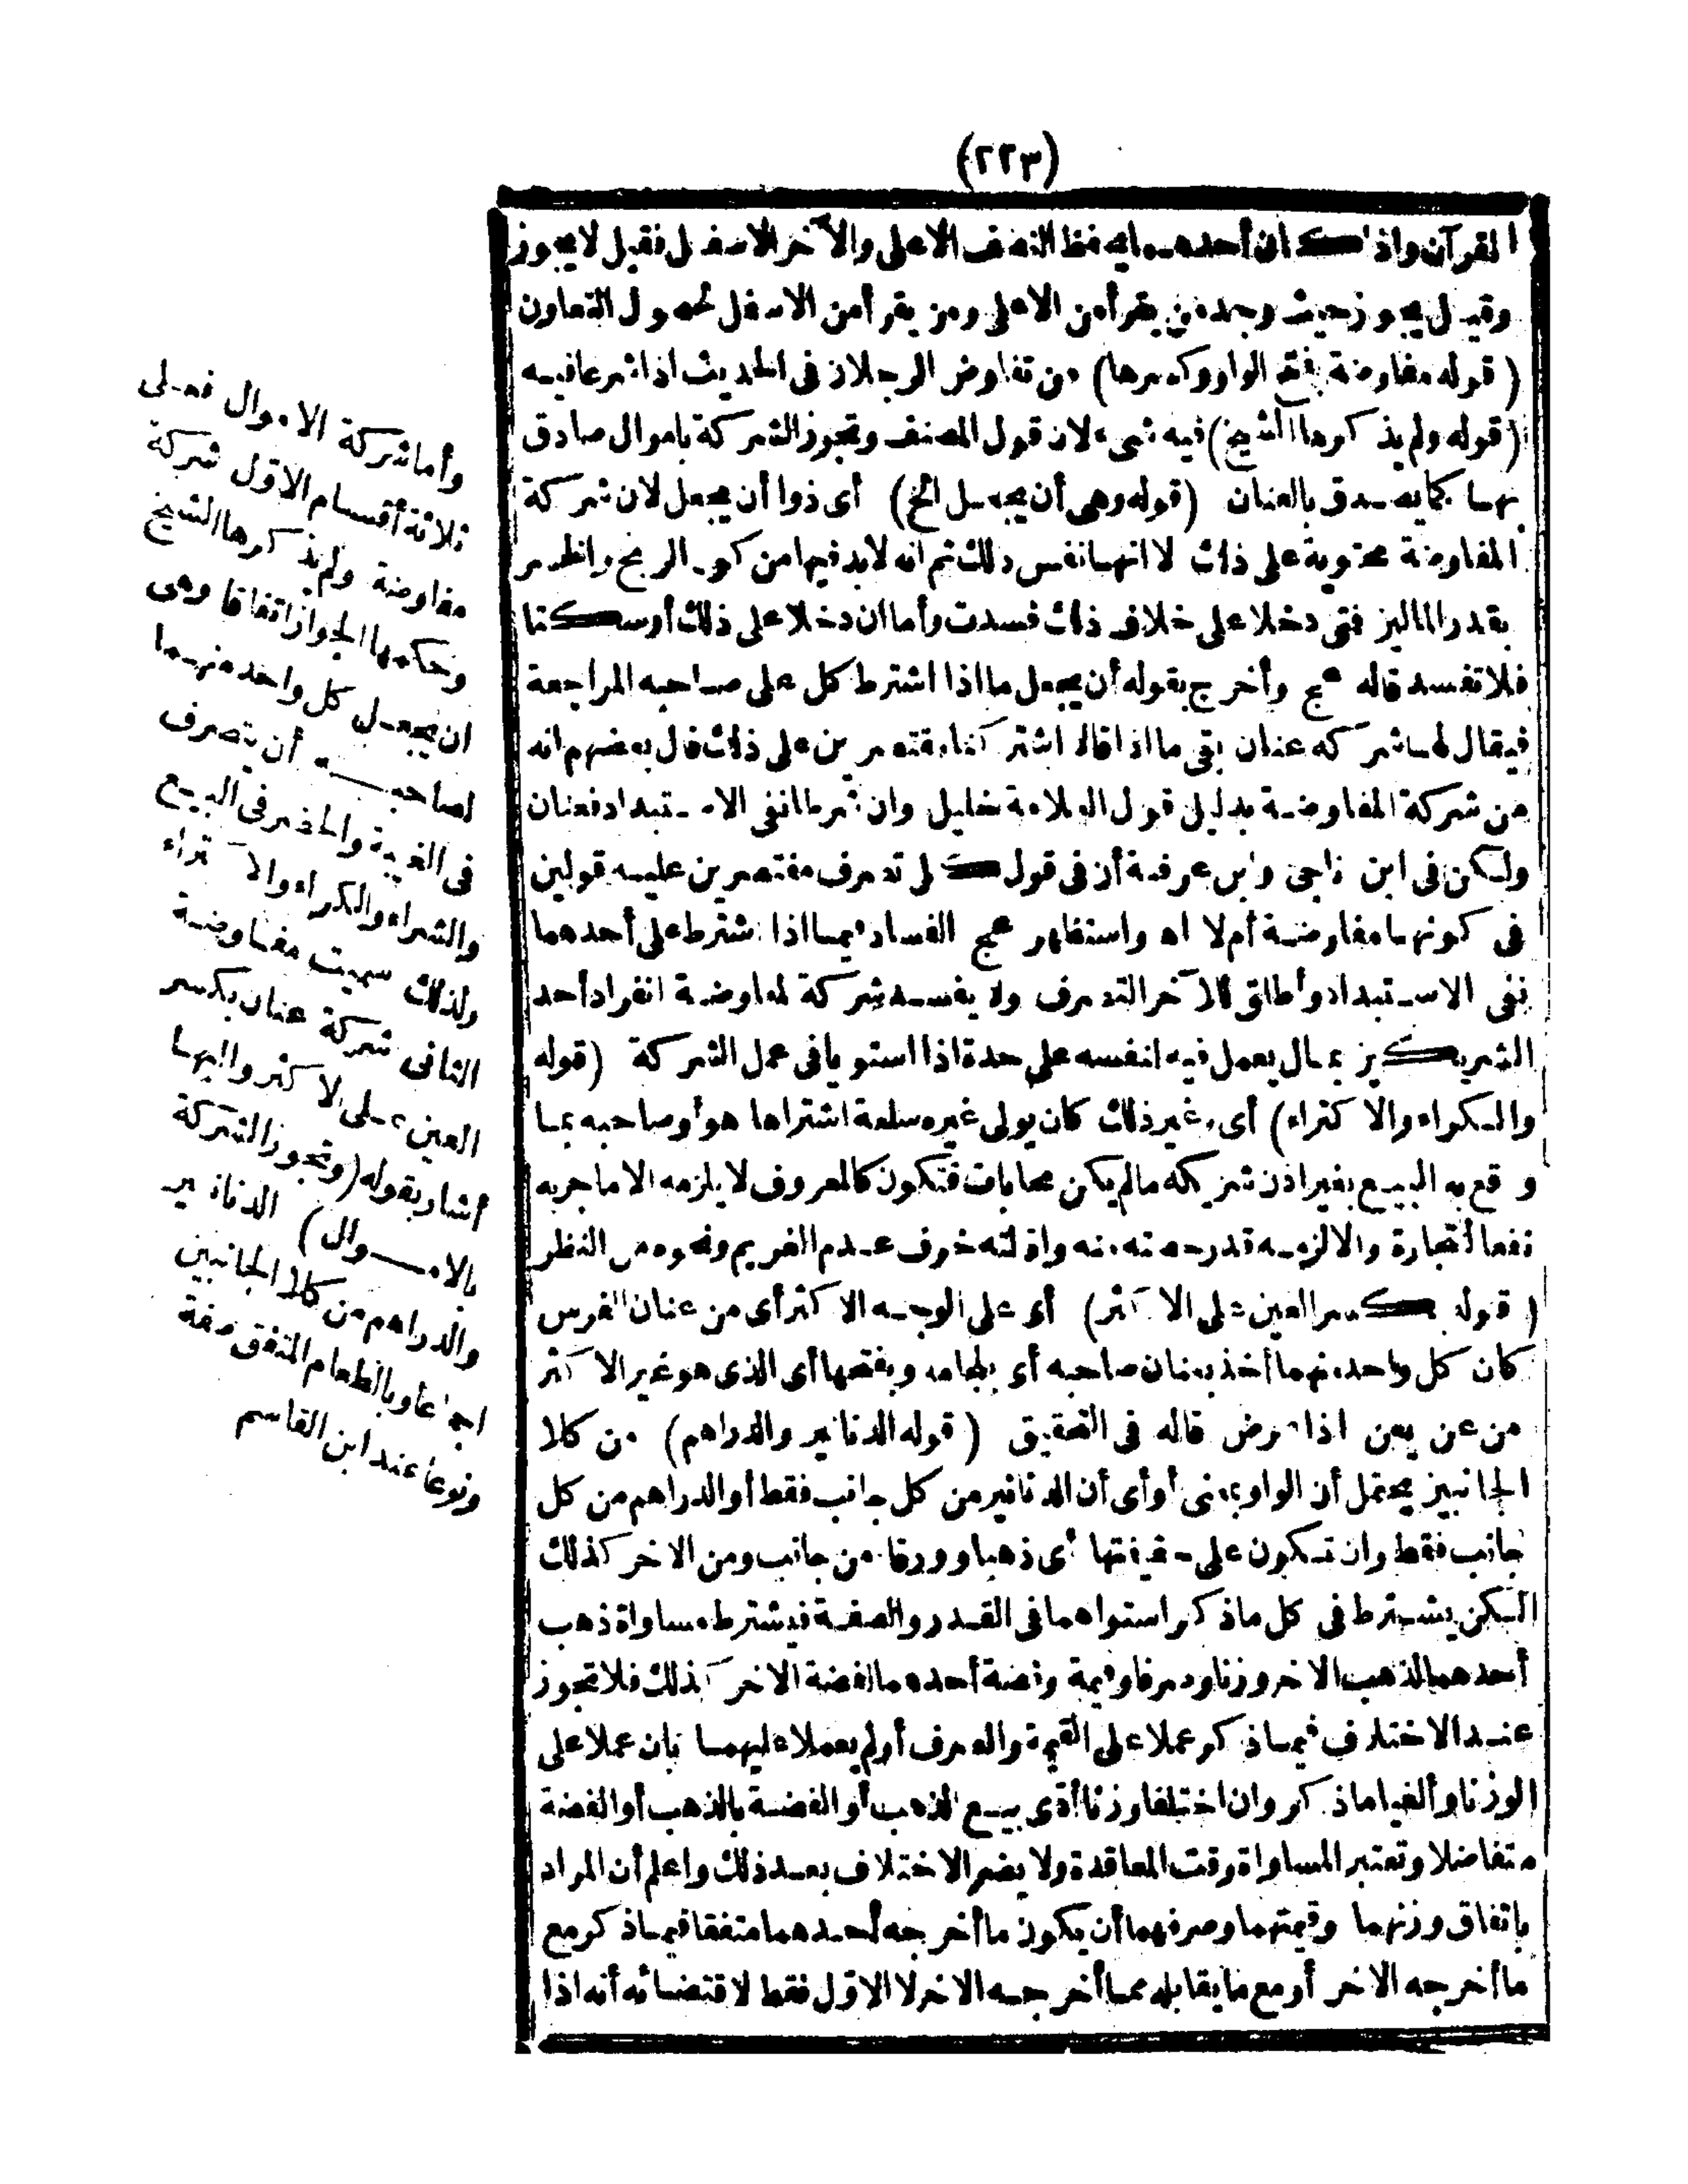 (٢٢٣)
القرآن واذا كان أحدهما يحفظ النصف الاعلى والآخر الاسفل فقيل لا يجوز
وقيل يجوز حيث وجد من يقرأ من الاعلى ومن يقرأ من الاسفل لحصول التعاون
(قوله مفاوضة بفتح الواو وكسرها) من تفاوض الرجلان فى الحديث اذا شرعا فيه
(قوله ولم يذكرها الشيخ) فيه شىء لان قول المصنف وتجوز الشركة باموال صادق
بها كما يصدق بالعنان (قوله وهى أن يجعل الخ) أى ذوا أن يجعل لان شركة
المفاوضة محتوية على ذلك لا انها نفس ذلك ثم انه لابد فيها من كون الربح والخسر
بقدر المالين فتى دخلا على خلاف ذلك فسدت وأما ان دخلا على ذلك أو سكتا
فلا تفسد قاله عج وأخرج بقوله أن يجعل ما اذا اشترط كل على صاحبه المراجعة
فيقال لها شركة عنان بقى ما اذا قالا اشتركنا مقتصرين على ذلك قال بعضهم انه
من شركة المفاوضة بدليل قول العلامة خليل وان شرطا نفى الاستبداد فعنان
ولكن فى ابن ناجى وابن عرفة أن فى قول كل تصرف مقتصرين عليه قولين
فى كونها مفاوضة أم لا اه واستظهر عج الفساد فيما اذا اشترط على أحدهما
نفى الاستبداد وأطلق للآخر التصرف ولا يفسد شركة المفاوضة انفراد أحد
الشريكين بمال يعمل فيه لنفسه على حدة اذا استويا فى عمل الشركة (قوله
والكراء والاكتراء) أى وغير ذلك كان يولى غيره سلعة اشتراها هو أو صاحبه بما
وقع به البيع بغير اذن شريكه مالم يكن محابات فتكون كالمعروف لا يلزمه الا ما جر به
نفعا للتجارة والا لزمه قدر حصته منه واقالته خوف عدم الغريم ونحوه من النظر
(قوله بكسر العين على الاكثر) أى على الوجه الاكثر أى من عنان الفرس
كان كل واحد منهما أخذ بعنان صاحبه أى بلجامه وبفتحها أى الذى هو غير الاكثر
من عن يعن اذا عرض قاله فى التحقيق (قوله الدنانير والدراهم) من كلا
الجانبين يحتمل أن الواو بمعنى أو أى أن الدنانير من كل جانب فقط أو الدراهم من كل
جانب فقط وان تكون على حقيقتها أى ذهبا وورقا من جانب ومن الاخر كذلك
لكن يشترط فى كل ما ذكر استواهما فى القدر والصفة فيشترط مساواة ذهب
أحدهما لذهب الاخر وزنا وصرفا وقيمة وفضة أحدهما لفضة الاخر كذلك فلا تجوز
عند الاختلاف فيما ذكر عملا على القيمة والصرف أو لم يعملا عليهما بان عملا على
الوزن وألغيا ما ذكر وان اختلفا وزنا أدى بيع الذهب أو الفضة بالذهب أو الفضة
متفاضلا وتعتبر المساواة وقت المعاقدة ولا يضر الاختلاف بعد ذلك واعلم أن المراد
باتفاق وزنهما وقيمتهما وصرفهما أن يكون ما أخرجه أحدهما متفقا فيما ذكر مع
ما أخرجه الاخر أو مع ما يقابله مما أخرجه الاخر لا الاول فقط لاقتضائه أنه اذا
وأما شركة الاموال فعلى
ثلاثة أقسام الاول شركة
مفاوضة ولم يذكرها الشيخ
وحكمها الجواز اتفاقا وهى
ان يجعل كل واحد منهما
لصاحبه أن يتصرف
فى الغيبة والحضر فى البيع
والشراء والكراء والاكتراء
ولذلك سميت مفاوضة
الثانى شركة عنان بكسر
العين على الاكثر واليها
أشار بقوله (وتجوز الشركة
بالاموال) الدنانير
والدراهم من كلا الجانبين
اجماعا وبالطعام المتفق صفة
ونوعا عند ابن القاسم